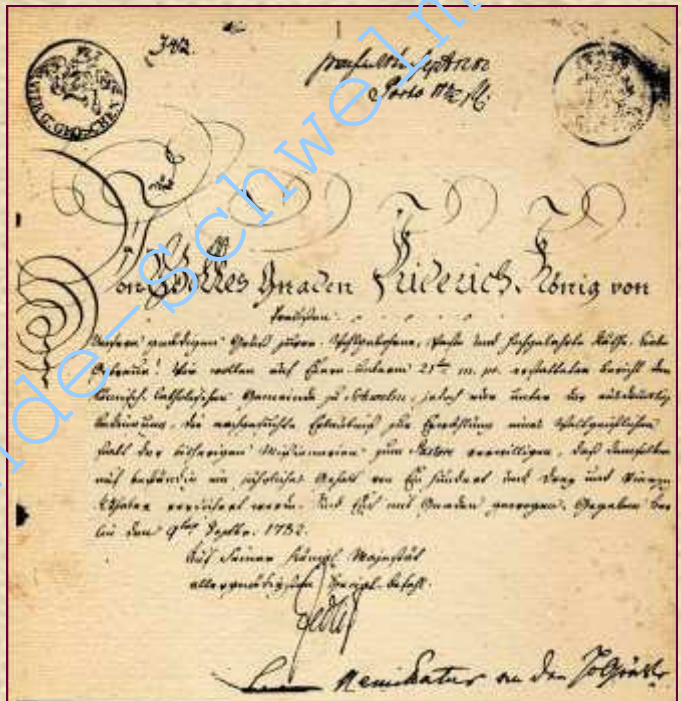 342.
Porto
VIER G. GROSCHEN
Von Gottes Gnaden Friderich, König von
Preußen
Unsern gnädigen Gruß zuvor. Wohlgebohrne, Veste und Hochgelahrte Räthe, liebe
Getreue! Wir wollen auf Euern unterm 21ten m. pr. erstatteten Bericht der
Römisch Catholischen Gemeinde zu Schwelm, jedoch nur unter der ausdrückl.
Bedingung, die nachgesuchte Erlaubniß zur Erwählung eines Weltgeistlichen
statt der bisherigen Missionarien zum Pastore verwilligen, daß demselben
auf beständig ein jährliches Gehalt von Ein hundert und Drey und Vierzig
Thaler versichert werde. Sind Euch mit Gnaden gewogen. Gegeben Ber
lin den 9ten Septbr. 1782.
Auf Seiner Königl. Majestät
allergnädigsten Special-Befehl.
Zedlitz
an den
de-schwelm